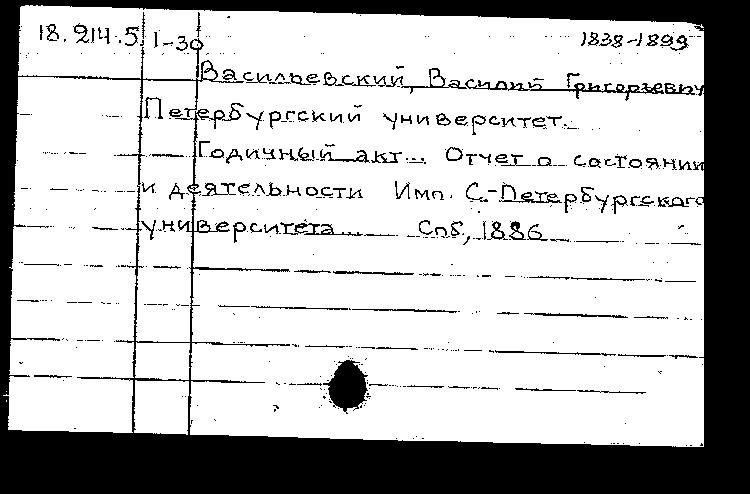 18.214.5 1-30 1838-1899
Васильевский, Василий Григорьевич
Петербургский университет.
Годичный акт... Отчет о состоянии
и деятельности Имп. С.-Петербургского
университета... Спб, 1886